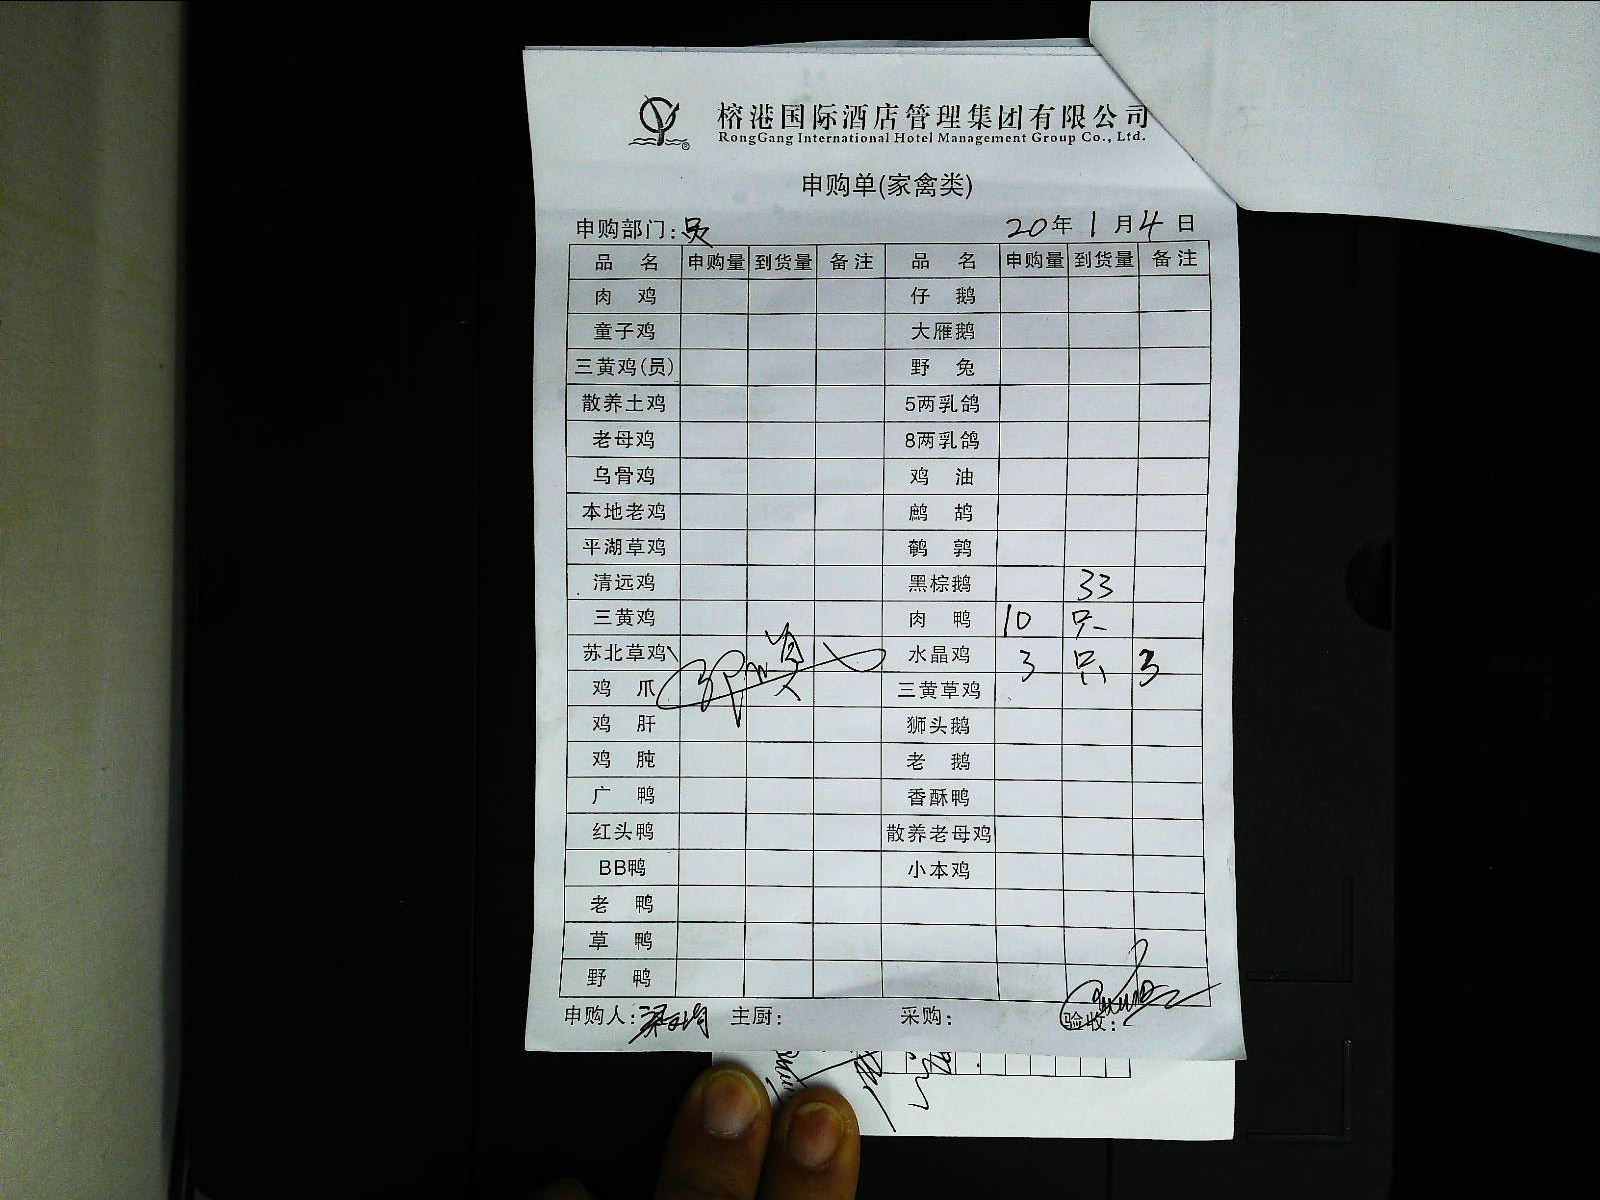 榕港国际酒店管理集团有限公司
RongGang International Hotel Management Group Co., Ltd.
申购单(家禽类)
申购部门:员 20年1月4日
品名 申购量 到货量 备注 品名 申购量 到货量 备注
肉鸡 仔鹅
童子鸡 大雁鹅
三黄鸡(员) 野兔
散养土鸡 5两乳鸽
老母鸡 8两乳鸽
乌骨鸡 鸡油
本地老鸡 鹧鸪
平湖草鸡 鹌鹑
清远鸡 黑棕鹅 33
三黄鸡 肉鸭 10 只
苏北草鸡 水晶鸡 3 只 3
鸡爪 三黄草鸡
鸡肝 狮头鹅
鸡肫 老鹅
广鸭 香酥鸭
红头鸭 散养老母鸡
BB鸭 小本鸡
老鸭
草鸭
野鸭
申购人: 主厨: 采购: 验收: